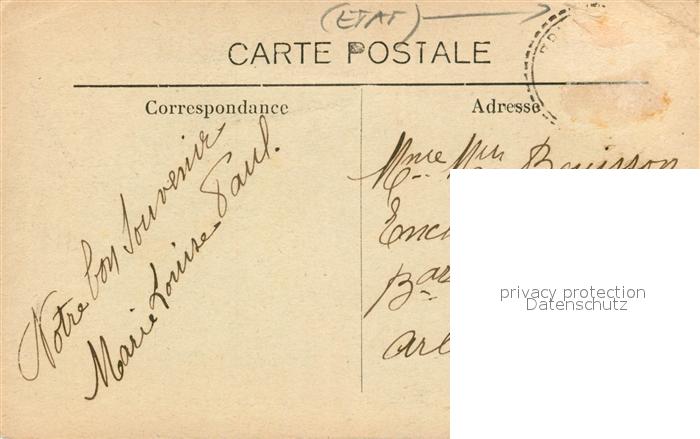 (ETAT)
CARTE POSTALE
Correspondance
Adresse
Notre bon Souvenir
Marie Louise Paul.
Mme
Enc
Bar
arl
privacy protection
Datenschutz